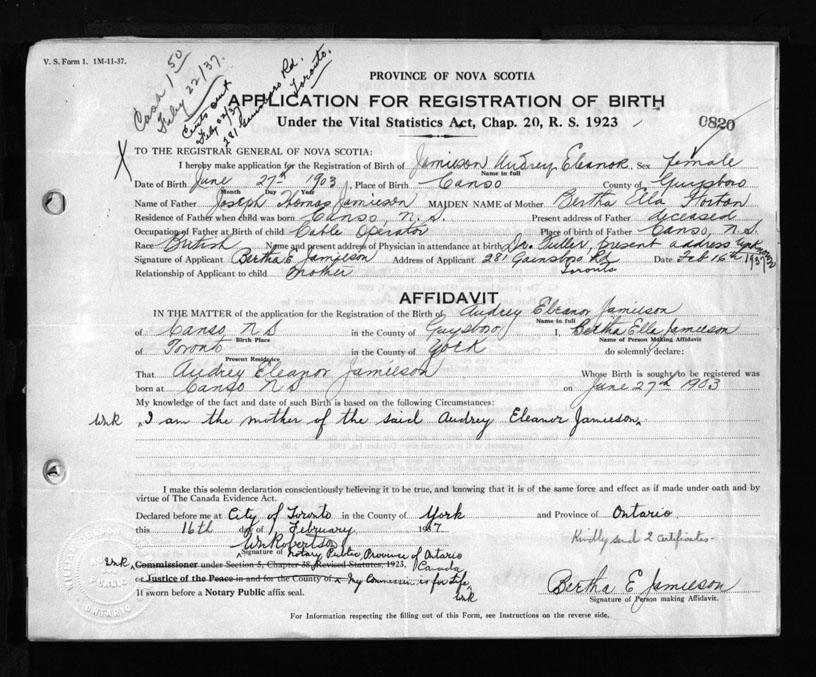 V. S. Form 1. 1M-11-37.
Cash 1 50
Feby 22/37.
Certs out
Feb 22/37
281 Gainsboro Rd.
Toronto.
PROVINCE OF NOVA SCOTIA
APPLICATION FOR REGISTRATION OF BIRTH
Under the Vital Statistics Act, Chap. 20, R. S. 1923
0820
X
TO THE REGISTRAR GENERAL OF NOVA SCOTIA:
I hereby make application for the Registration of Birth of Jamieson Audrey Eleanor, Sex female
Name in full
Date of Birth June 27th 1903, Place of Birth Canso County of Guysboro
Month Day Year
Name of Father Joseph Thomas Jamieson MAIDEN NAME of Mother Bertha Ella Horton
Residence of Father when child was born Canso, N.S. Present address of Father deceased
Occupation of Father at Birth of child Cable Operator Place of birth of Father Canso, N.S.
Race British Name and present address of Physician in attendance at birth Dr. Fuller, present address unknown
Signature of Applicant Bertha E Jamieson Address of Applicant 281 Gainsboro Rd Toronto Date Feb 16th 1937
Relationship of Applicant to child mother
AFFIDAVIT
IN THE MATTER of the application for the Registration of the Birth of Audrey Eleanor Jamieson
Name in full
of Canso N S in the County of Guysboro I, Bertha Ella Jamieson
Birth Place Name of Person Making Affidavit
of Toronto in the County of York do solemnly declare:
Present Residence
That Audrey Eleanor Jamieson Whose Birth is sought to be registered was
born at Canso N S on June 27th 1903
My knowledge of the fact and date of such Birth is based on the following Circumstances:
WNR I am the mother of the said Audrey Eleanor Jamieson.
I make this solemn declaration conscientiously believing it to be true, and knowing that it is of the same force and effect as if made under oath and by
virtue of The Canada Evidence Act.
Declared before me at City of Toronto in the County of York and Province of Ontario
this 16th day of February 1937
Kindly send 2 Certificates-
WNRobertson
Signature of Notary Public, Province of Ontario
WNR Commissioner under Section 5, Chapter 38, Revised Statutes, 1923, Canada
or Justice of the Peace in and for the County of My Commission is for Life WNR
Bertha E Jamieson
If sworn before a Notary Public affix seal.
Signature of Person making Affidavit.
For Information respecting the filling out of this Form, see Instructions on the reverse side.
PUBLIC
ONTARIO